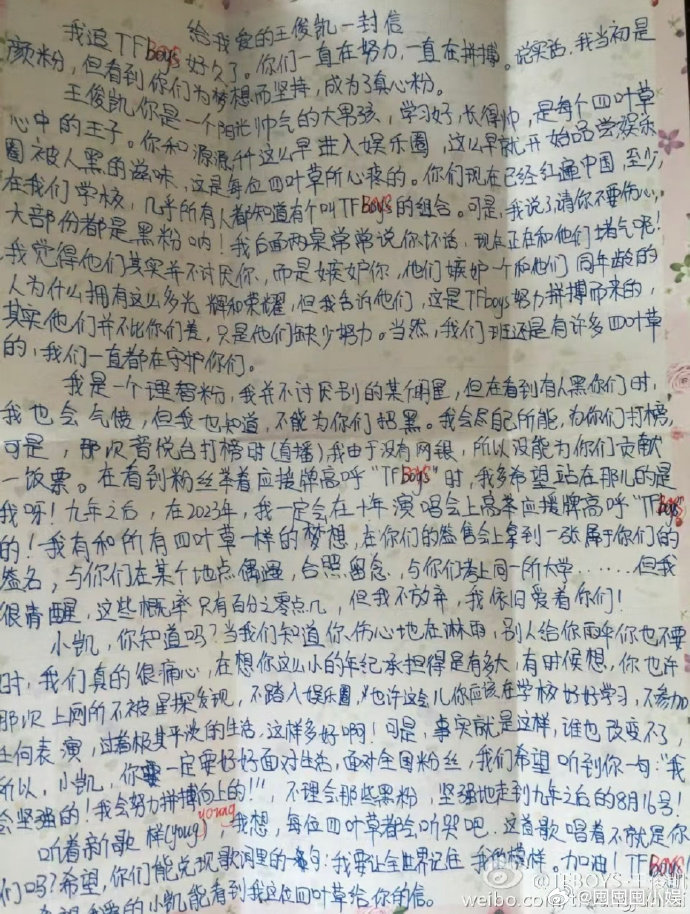 给我爱的王俊凯一封信
我追TFboys好久了。你们一直在努力,一直在拼搏。说实话,我当初是
颜粉,但看到你们为梦想而坚持,成为了真心粉。
王俊凯,你是一个阳光帅气的大男孩,学习好,长得帅,是每个四叶草
心中的王子。你和源源千千这么早进入娱乐圈,这么早就开始品尝娱乐
圈被人黑的滋味,这是每位四叶草所心疼的。你们现在已经红遍中国,至少
在我们学校,几乎所有人都知道有个叫TFboys的组合。可是,我说了请你不要伤心,
大部份都是黑粉呐!我后面两桌常常说你坏话,现在正在和他们堵气呢!
我觉得他们其实并不讨厌你,而是嫉妒你,他们嫉妒一个和他们同年龄的
人为什么拥有这么多光辉和荣耀,但我告诉他们,这是TFboys努力拼搏而来的,
其实他们并不比你们差,只是他们缺少努力。当然,我们班还是有许多四叶草
的,我们一直都在守护你们。
我是一个理智粉,我并不讨厌别的某个明星,但在看到有人黑你们时,
我也会气愤,但我也知道,不能为你们招黑。我会尽自己所能,为你们打榜,
可是,那次音悦台打榜时(直播)我由于没有网银,所以没能为你们贡献
一饭票。在看到粉丝举着应援牌高呼“TFboys”时,我多希望站在那儿的是
我呀!九年之后,在2023年,我一定会在十年演唱会上高举应援牌高呼“TFboys”
的!我有和所有四叶草一样的梦想,在你们的签售会上拿到一张属于你们的
签名,与你们在某个地点偶遇,合照留念,与你们考上同一所大学……但我
很清醒,这些概率只有百分之零点几,但我不放弃,我依旧爱着你们!
小凯,你知道吗?当我们知道你伤心地在淋雨,别人给你雨伞你也不要
时,我们真的很痛心,在想你这么小的年纪承担得是有多大,有时候想,你也许
那次上网所不被星探发现,不踏入娱乐圈,也许这会儿你应该在学校好好学习,不参加
任何表演,过着极其平淡的生活,这样多好啊!可是,事实就是这样,谁也改变不了,
所以,小凯,你一定要好好面对生活,面对全国粉丝,我们希望听到你一句:“我
会坚强的!我会努力拼搏向上的!!!,不理会那些黑粉,坚强地走到九年之后的8月16号!
听着新歌 样(young) young 我想,每位四叶草都会听哭吧。这首歌唱着不就是你
们吗?希望,你们能兑现歌词里的一句:我要让全世界记住我的模样。加油!TFboys
希望我爱的小凯能看到我这位四叶草给你的信。